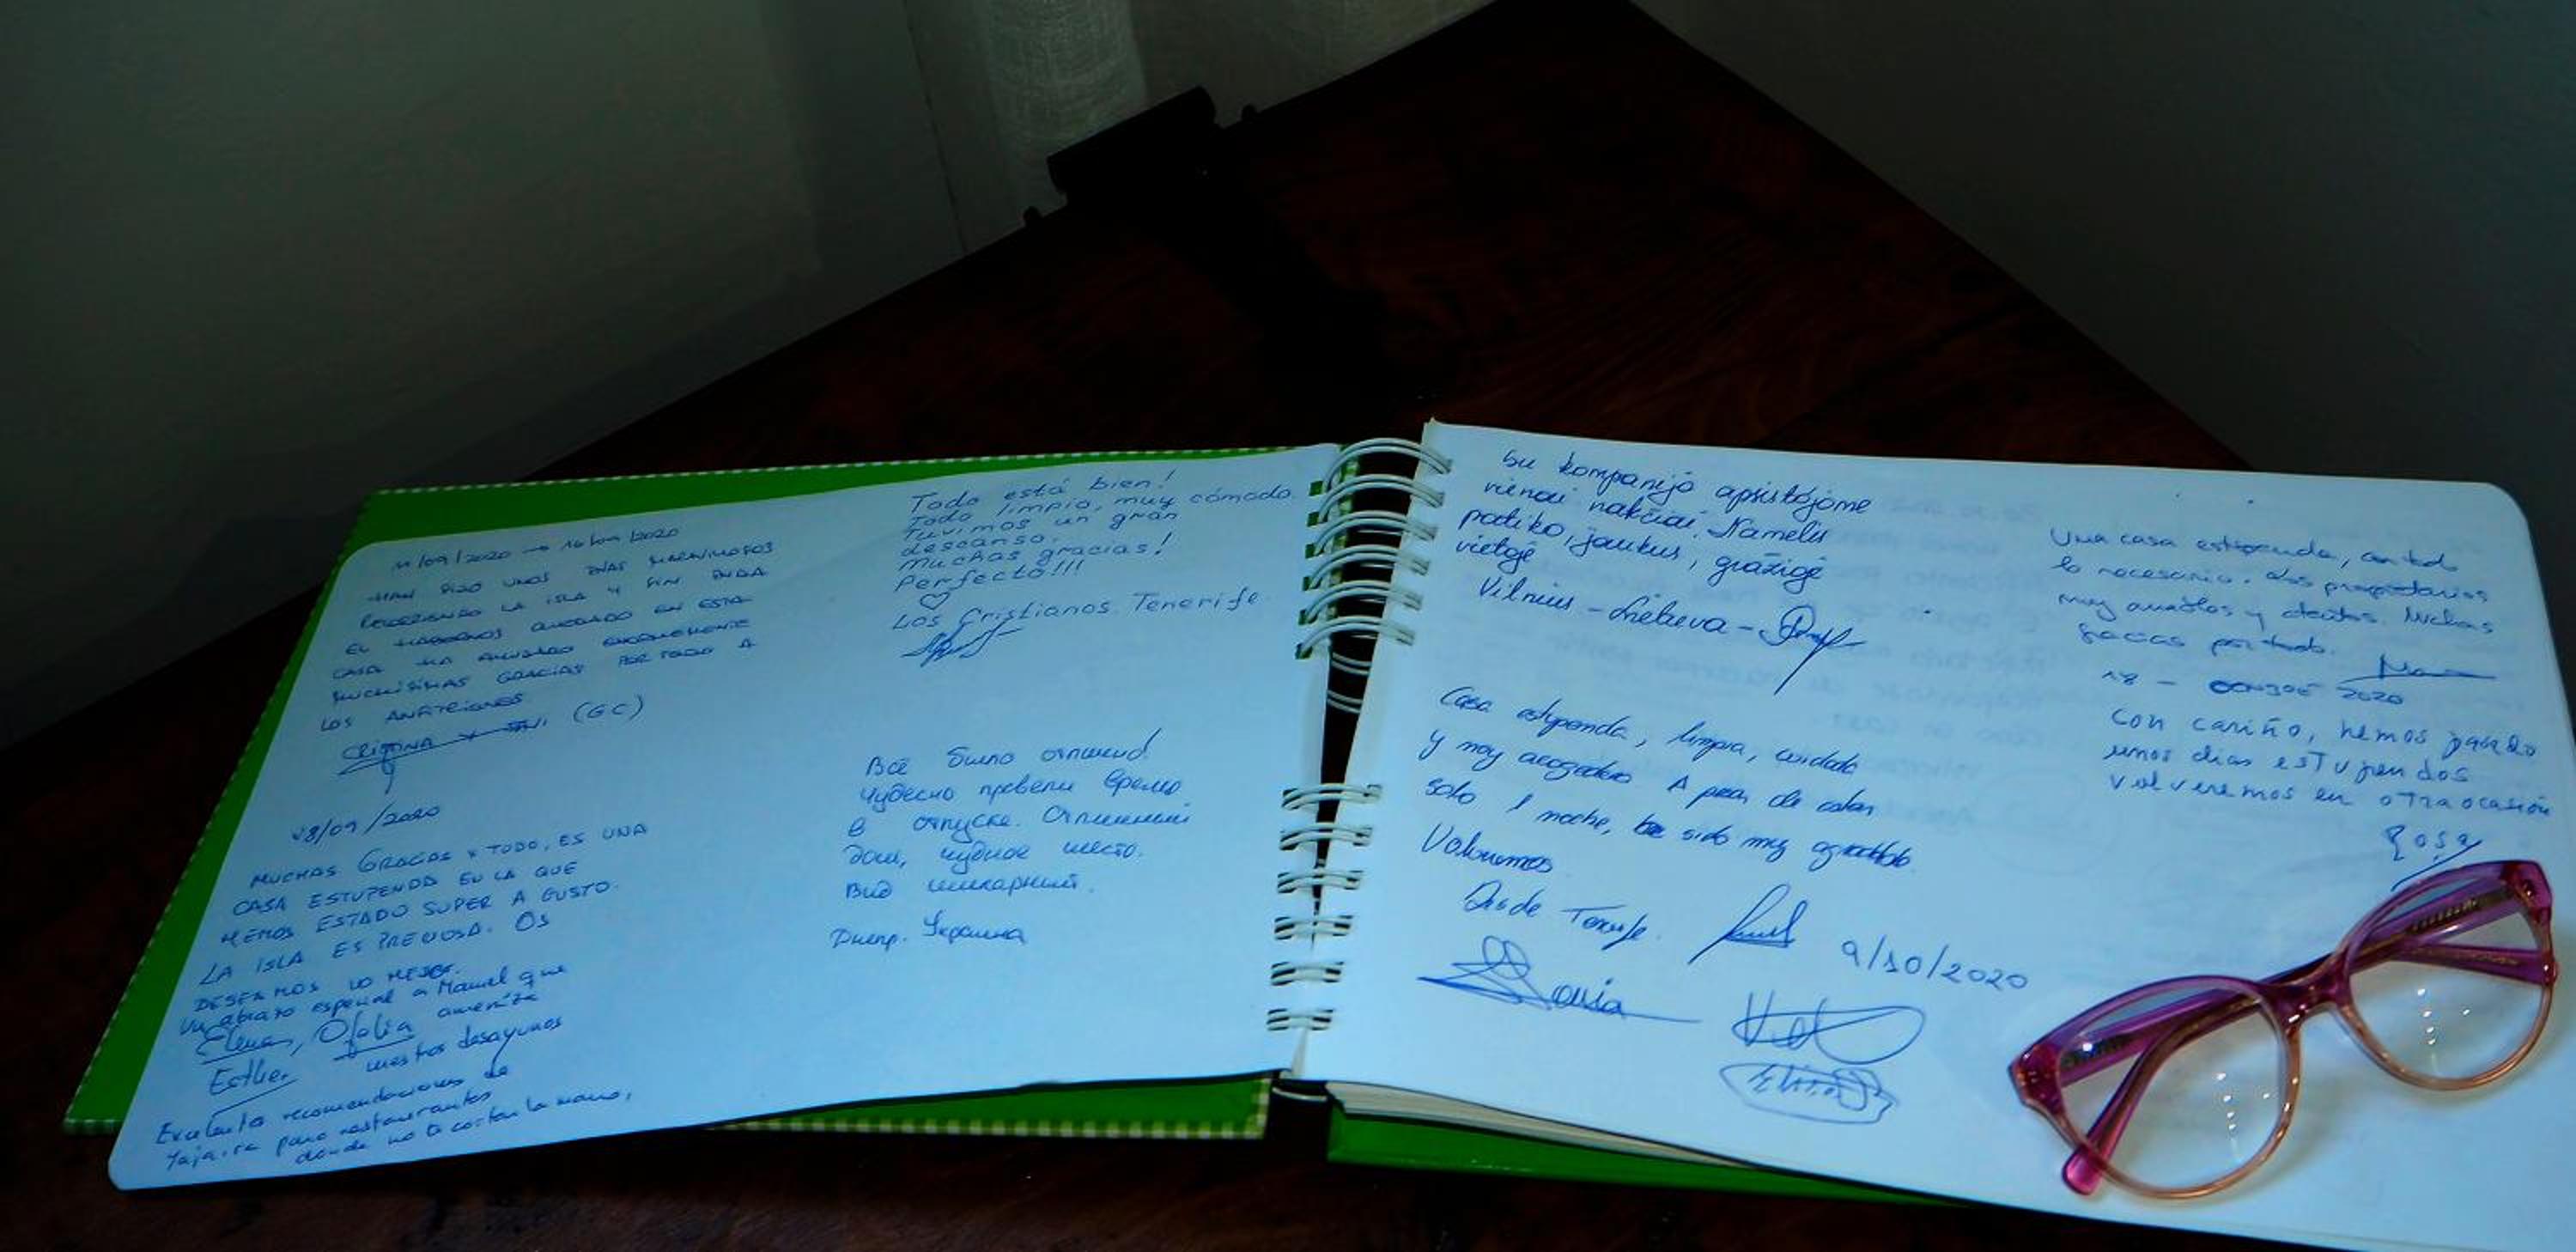 11/09/2020 → 16/09/2020
HAN SIDO UNOS DÍAS MARAVILLOSOS
RECORRIENDO LA ISLA Y SIN DUDA
EL HABERNOS QUEDADO EN ESTA
CASA HA AYUDADO ENORMEMENTE
MUCHÍSIMAS GRACIAS POR TODO A
LOS ANFITRIONES
CRISTINA Y (GC)
28/09/2020
MUCHAS GRACIAS X TODO, ES UNA
CASA ESTUPENDA EN LA QUE
HEMOS ESTADO SUPER A GUSTO.
LA ISLA ES PRECIOSA. OS
DESEAMOS LO MEJOR.
Un abrazo especial a Manuel que
Elena, Ofelia ameniza
Esther nuestros desayunos
recomendaciones de
para restaurantes
donde no te cortan la mano,
Todo está bien!
Todo limpio, muy cómodo
Tuvimos un gran
descanso.
Muchas gracias!
Perfecto!!!
♡
Los Cristianos Tenerife
Всё было отлично!
Чудесно провели время
в отпуске. Отличный
дом, чудное место.
Вид шикарный.
Днепр. Украина
Su kompanija apsistojome
vienai nakčiai. Namelis
patiko, jaukus, gražioje
vietoje
Vilnius - Lietuva -
Casa estupenda, limpia, cuidada
y muy acogedora A pesar de estar
solo 1 noche, ha sido muy agradable
Volveremos
Desde Tenerife. 9/10/2020
Sonia
Una casa estupenda, con todo
lo necesario. Los propietarios
muy amables y atentos. Muchas
gracias por todo.
18 - OCTUBRE 2020
Con cariño, hemos pasado
unos dias estupendos
volveremos en otra ocasión
Rosa